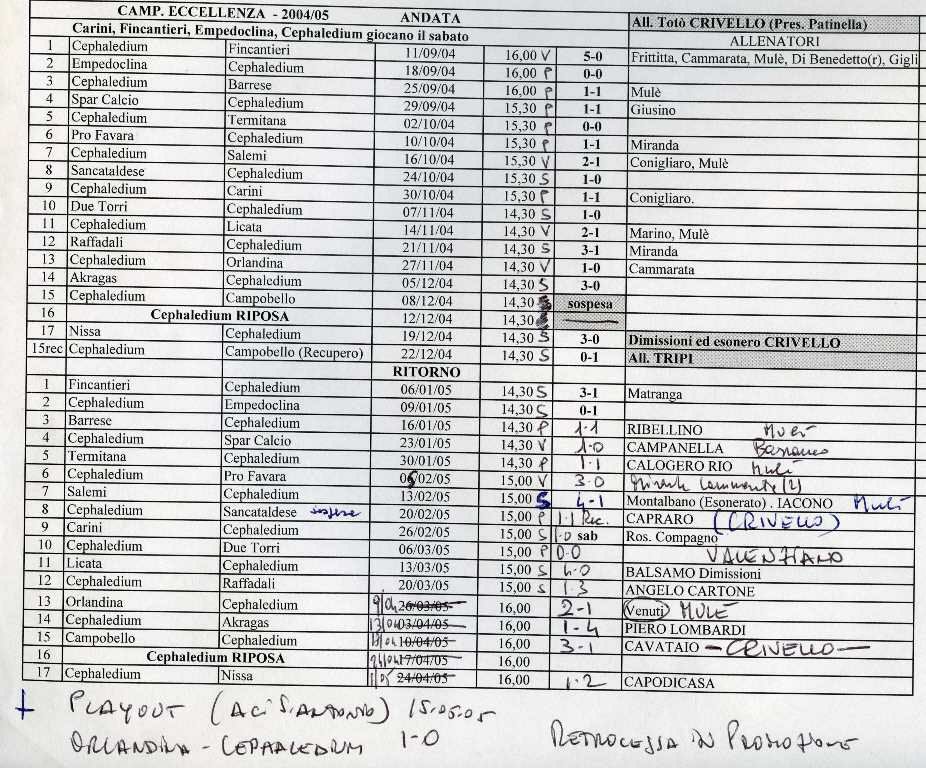 CAMP. ECCELLENZA - 2004/05 ANDATA All. Totò CRIVELLO (Pres. Patinella)
Carini, Fincantieri, Empedoclina, Cephaledium giocano il sabato ALLENATORI
1 Cephaledium Fincantieri 11/09/04 16,00 V 5-0 Frittitta, Cammarata, Mulè, Di Benedetto(r), Gigli
2 Empedoclina Cephaledium 18/09/04 16,00 P 0-0
3 Cephaledium Barrese 25/09/04 16,00 P 1-1 Mulè
4 Spar Calcio Cephaledium 29/09/04 15,30 P 1-1 Giusino
5 Cephaledium Termitana 02/10/04 15,30 P 0-0
6 Pro Favara Cephaledium 10/10/04 15,30 P 1-1 Miranda
7 Cephaledium Salemi 16/10/04 15,30 V 2-1 Conigliaro, Mulè
8 Sancataldese Cephaledium 24/10/04 15,30 S 1-0
9 Cephaledium Carini 30/10/04 15,30 P 1-1 Conigliaro.
10 Due Torri Cephaledium 07/11/04 14,30 S 1-0
11 Cephaledium Licata 14/11/04 14,30 V 2-1 Marino, Mulè
12 Raffadali Cephaledium 21/11/04 14,30 S 3-1 Miranda
13 Cephaledium Orlandina 27/11/04 14,30 V 1-0 Cammarata
14 Akragas Cephaledium 05/12/04 14,30 S 3-0
15 Cephaledium Campobello 08/12/04 14,30 sospesa
16 Cephaledium RIPOSA 12/12/04 14,30
17 Nissa Cephaledium 19/12/04 14,30 S 3-0 Dimissioni ed esonero CRIVELLO
15rec Cephaledium Campobello (Recupero) 22/12/04 14,30 S 0-1 All. TRIPI
RITORNO
1 Fincantieri Cephaledium 06/01/05 14,30 S 3-1 Matranga
2 Cephaledium Empedoclina 09/01/05 14,30 S 0-1
3 Barrese Cephaledium 16/01/05 14,30 P 1-1 RIBELLINO Mulè
4 Cephaledium Spar Calcio 23/01/05 14,30 V 1-0 CAMPANELLA
5 Termitana Cephaledium 30/01/05 14,30 P 1-1 CALOGERO RIO Mulè
6 Cephaledium Pro Favara 05/02/05 15,00 V 3-0
7 Salemi Cephaledium 13/02/05 15,00 S 4-1 Montalbano (Esonerato) . IACONO Mulè
8 Cephaledium Sancataldese sospesa 20/02/05 15,00 P 1-1 Rec. CAPRARO (CRIVELLO)
9 Carini Cephaledium 26/02/05 15,00 S 1-0 sab Ros. Compagno
10 Cephaledium Due Torri 06/03/05 15,00 P 0-0 VALENZIANO
11 Licata Cephaledium 13/03/05 15,00 S 4-0 BALSAMO Dimissioni
12 Cephaledium Raffadali 20/03/05 15,00 S 1-3 ANGELO CARTONE
13 Orlandina Cephaledium 9/04 26/03/05 16,00 2-1 Venuti MULÈ
14 Cephaledium Akragas 13/04 03/04/05 16,00 1-4 PIERO LOMBARDI
15 Campobello Cephaledium 10/04/05 16,00 3-1 CAVATAIO - CRIVELLO -
16 Cephaledium RIPOSA 24/04 17/04/05 16,00
17 Cephaledium Nissa 1/05 24/04/05 16,00 1-2 CAPODICASA
+ PLAYOUT (ACI S. ANTONIO) 15.05.05
ORLANDINA - CEPHALEDIUM 1-0 RETROCESSA IN PROMOZIONE